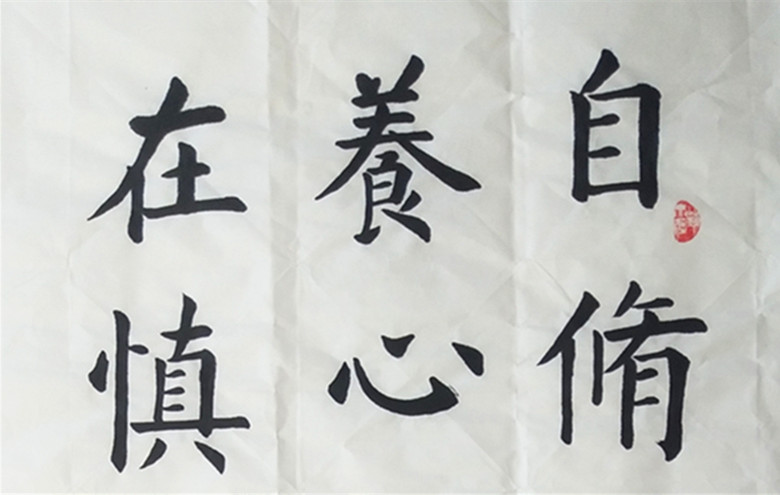 自脩
養心
在慎